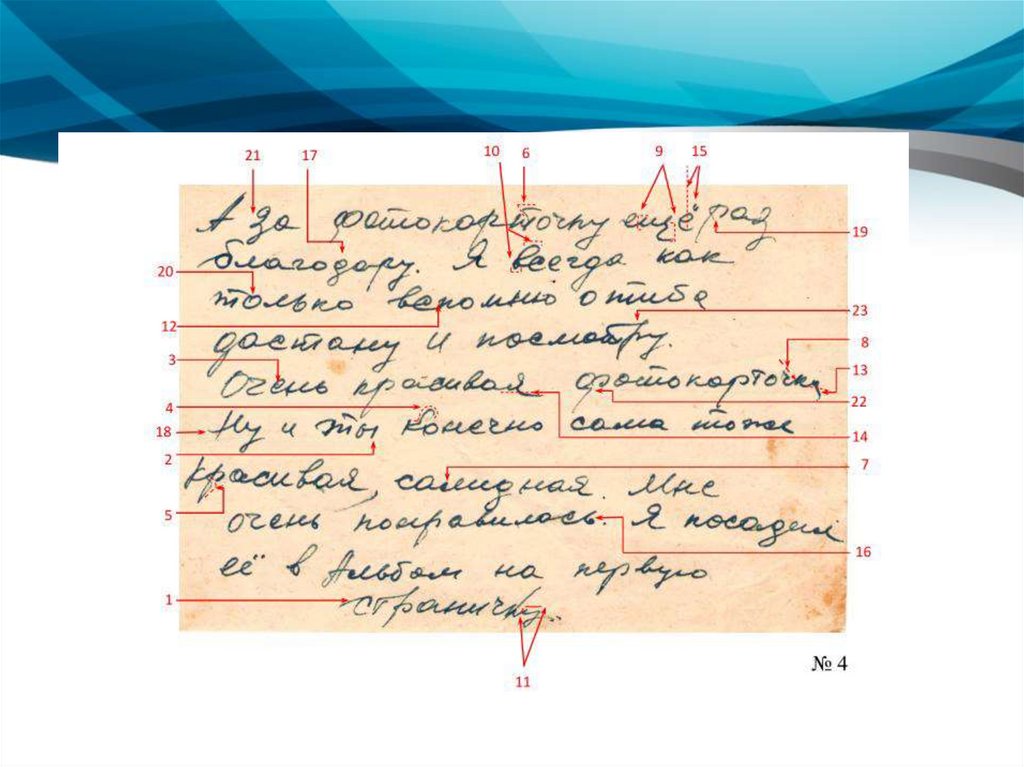 21 17 10 6 9 15
А за фотокарточку ещё раз
19
благодару. Я всегда как
20
только вспомню о тибе
23
12
дастану и посмотру.
8
3
13
Очень красивая фотокарточка
22
4
18
Ну и ты конечно сама тоже
14
2
7
красивая, салидная. Мне
5
очень понравилось. Я посадил
16
её в Альбом на первую
1
страничку.
№ 4
11